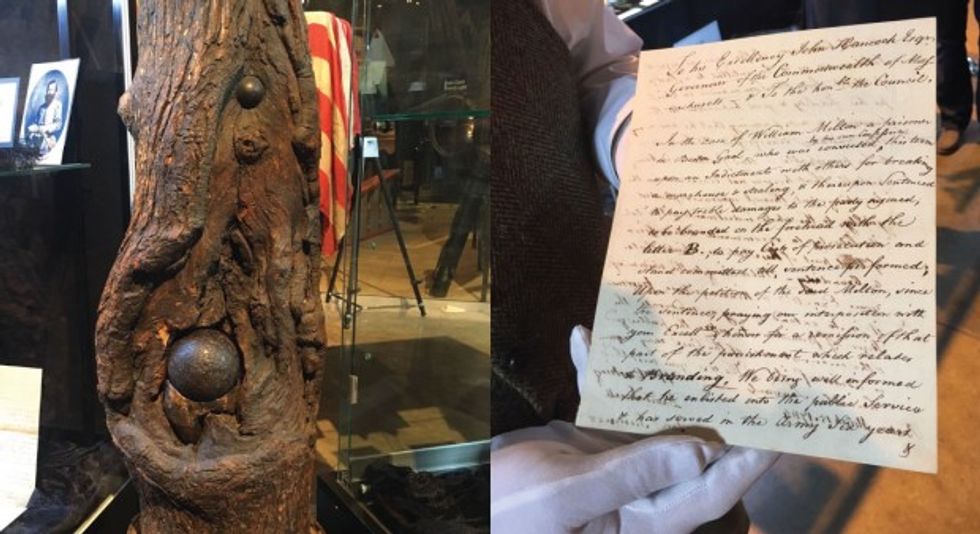 To his Excellency John Hancock Esqr,
Governor of the Commonwealth of Mass
achusetts, & To the honble the Council,
In the case of William Milton a prisoner
by his own confession
in Boston Goal, who was convicted, this term
upon an Indictment with others for breaking
a warehouse & stealing, & thereupon Sentenced
to pay treble damages to the party injured,
to be branded on the forehead with the
letter B, to pay Costs of prosecution and
stand committed till sentence performed;
Upon the petition of the said Milton, since
the sentence, praying our interposition with
your Excelly & honors for a remission of that
part of the punishment, which relates
to Branding, We being well informed
that he enlisted into the public Service
& has served in the Army Six years
&